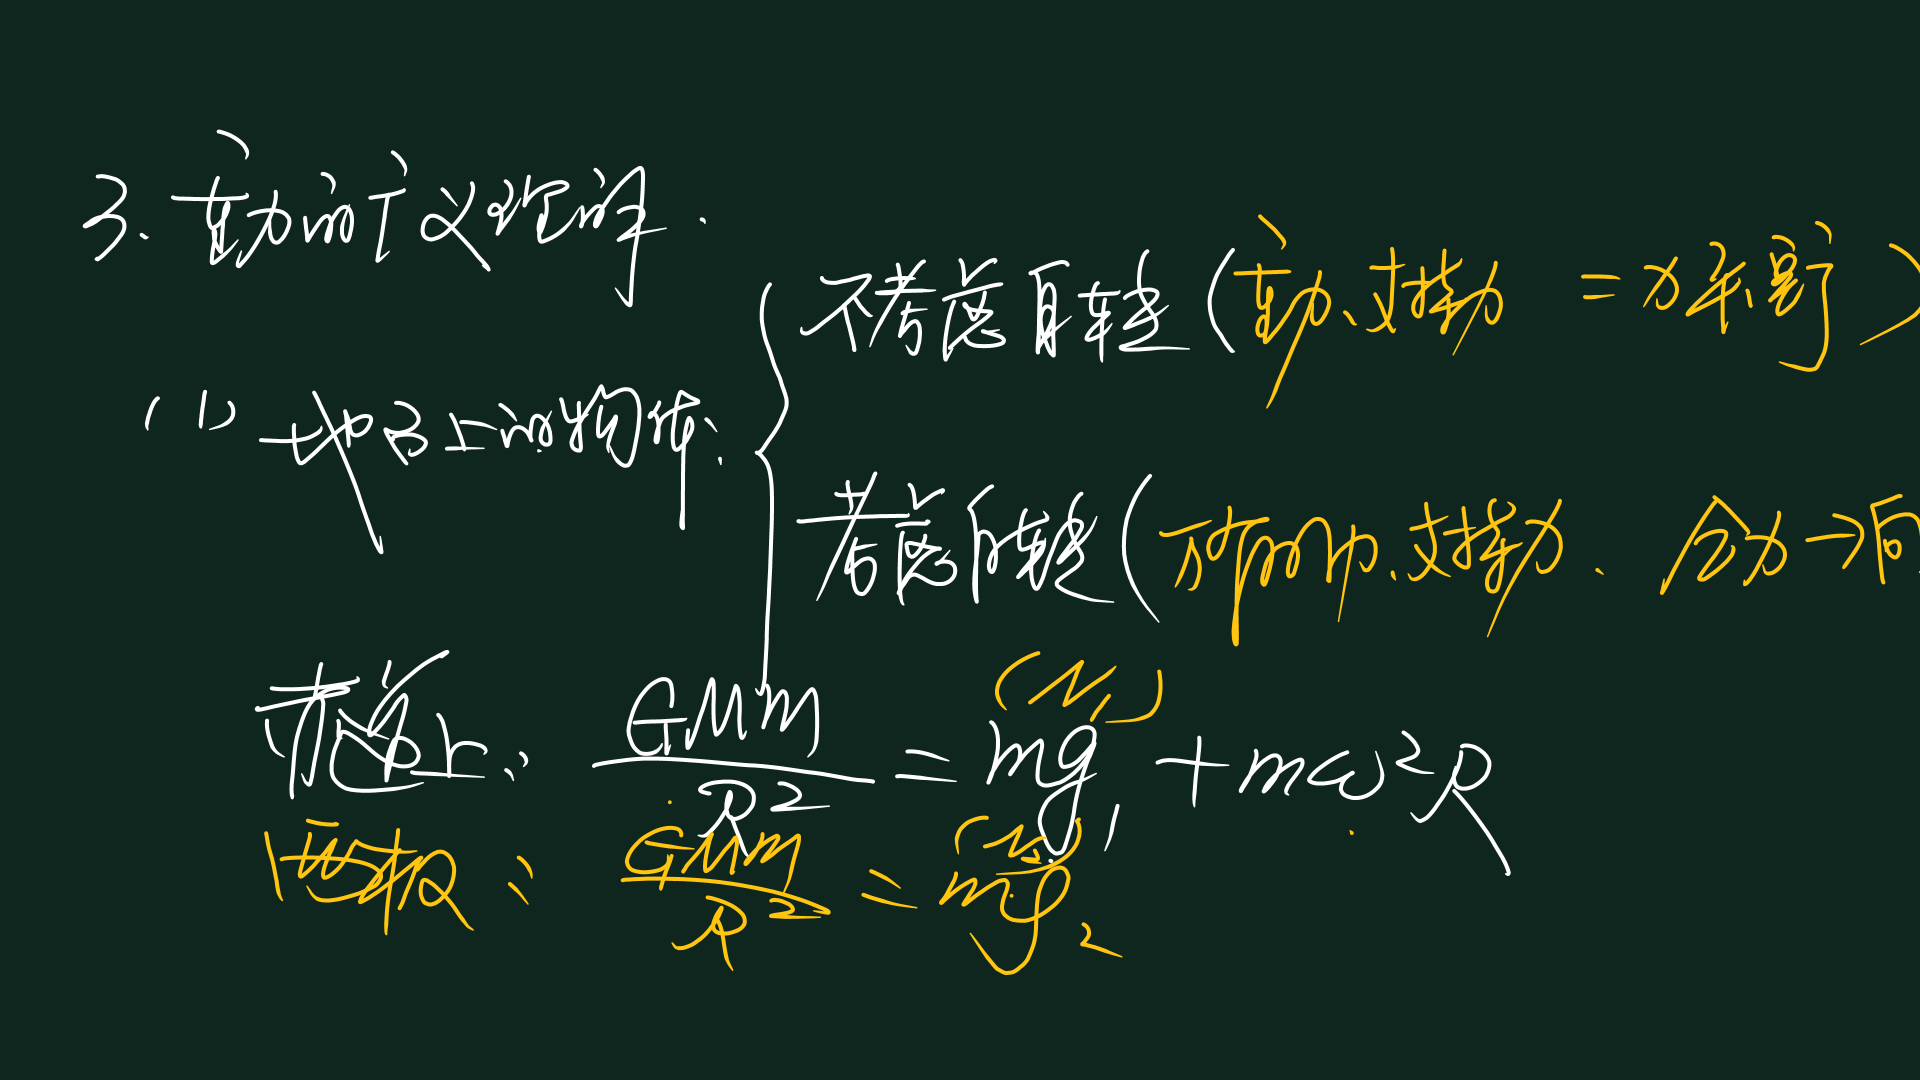 3. 重力的广义理解.
不考虑自转(重力、支持力 = 力平衡)
(1) 地面上的物体:
考虑自转(万有引力、支持力. 合力→向
赤道上: GMm/R² = mg₁ (N₁) + mω²R
两极: GMm/R² = mg₂ (N₂)